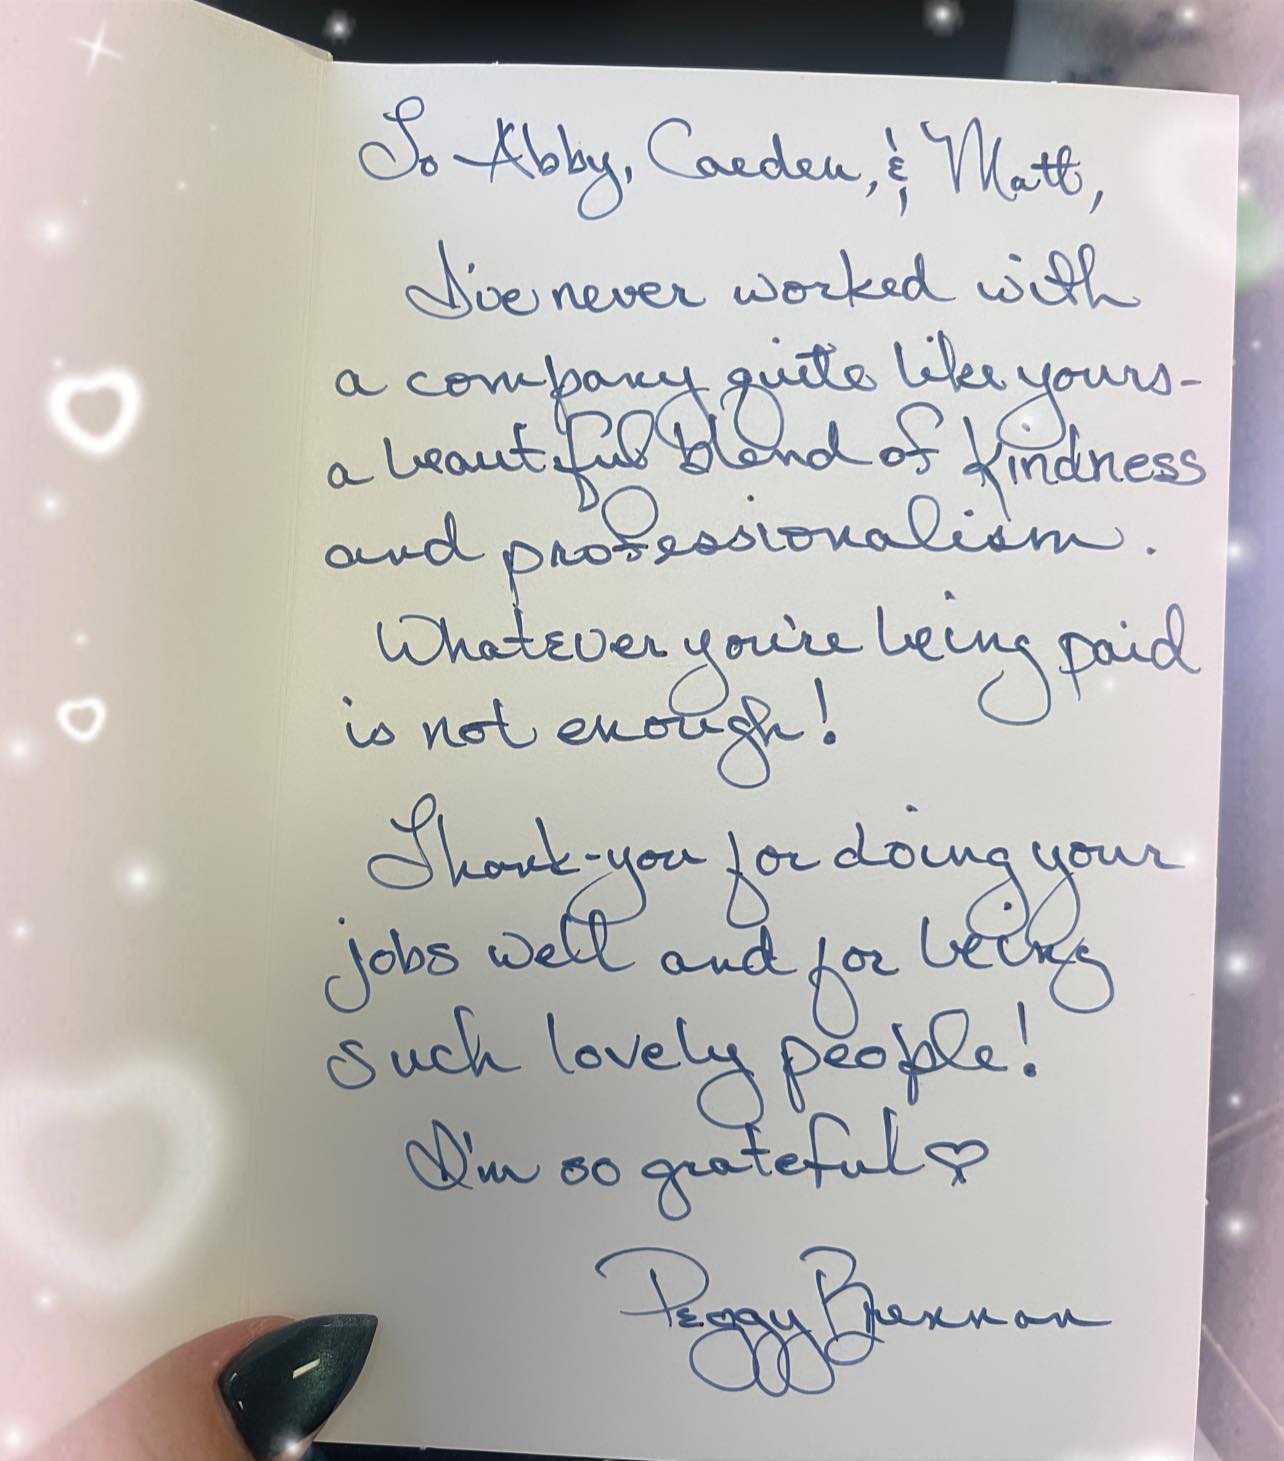 To Abby, Caeden, & Matt,
I've never worked with
a company quite like yours-
a beautiful blend of kindness
and professionalism.
Whatever you're being paid
is not enough!
Thank-you for doing your
jobs well and for being
such lovely people!
I'm so grateful ♡
Peggy Brennan